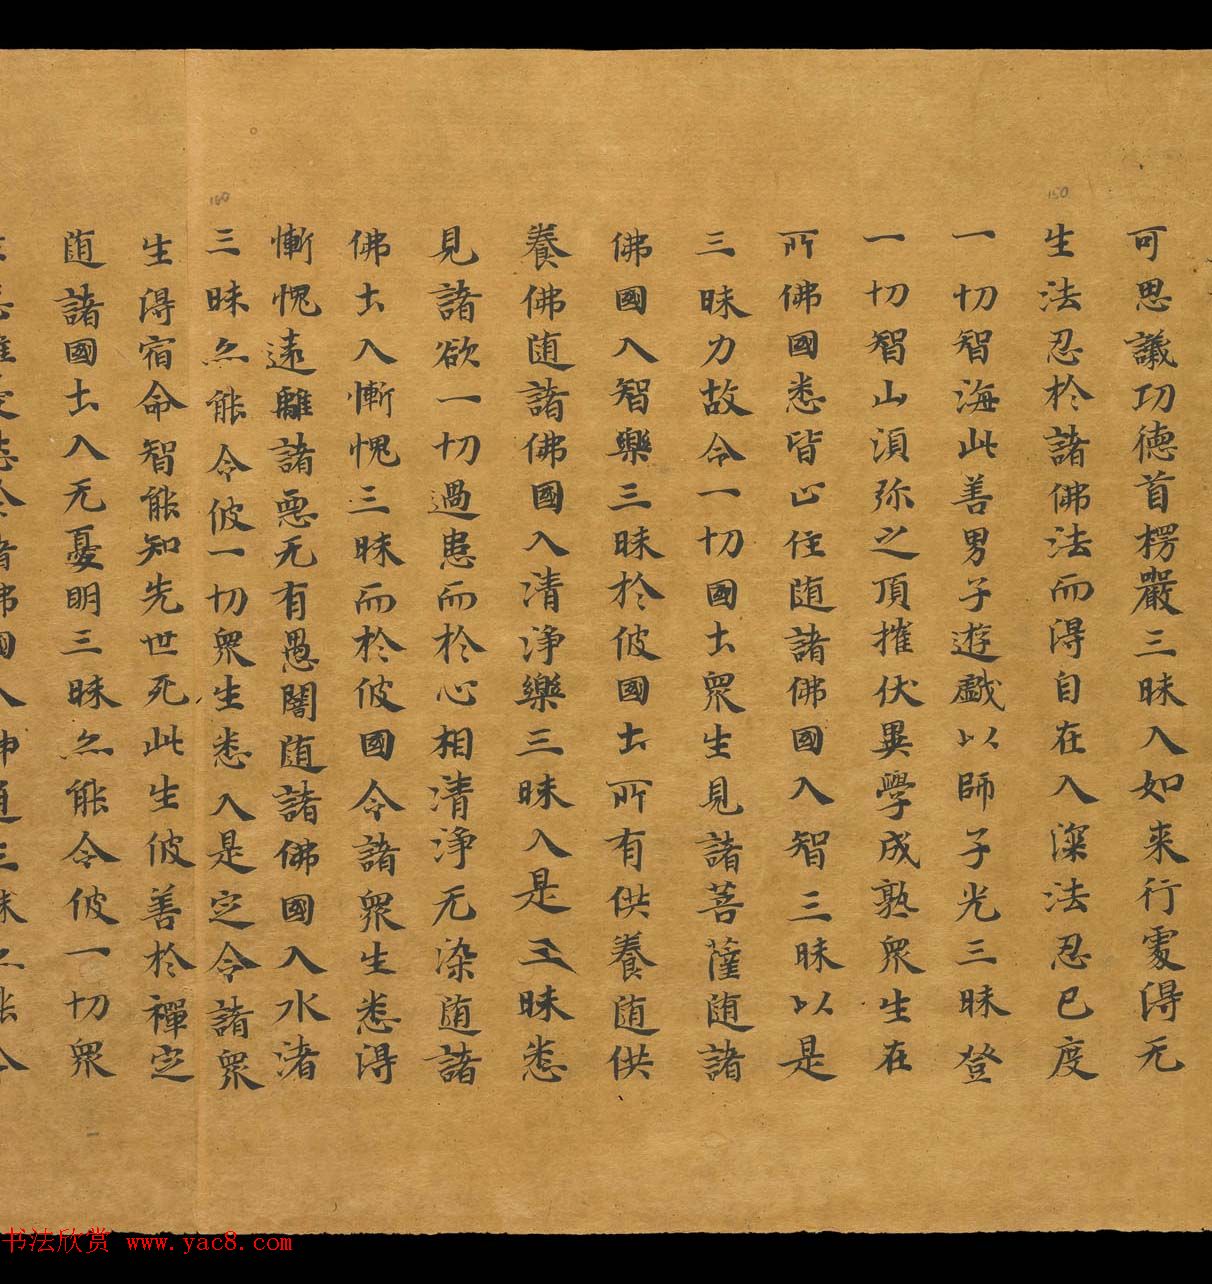 可思議功德首楞嚴三昧入如来行處淂无
生法忍於諸佛法而淂自在入深法忍已度
一切智海此善男子遊戲以師子光三昧登
一切智山湏弥之頂摧伏異學成熟衆生在
所佛國悉皆止住随諸佛國入智三昧以是
三昧力故令一切國土衆生見諸菩薩随諸
佛國入智樂三昧於彼國土所有供養随供
養佛随諸佛國入清淨樂三昧入是三昧悉
見諸欲一切過患而於心相清淨无染随諸
佛土入慚愧三昧而於彼國令諸衆生悉得
慚愧遠離諸惡无有愚闇随諸佛國入水渚
三昧亦能令彼一切衆生悉入是定令諸衆
生淂宿命智能知先世死此生彼善於禪定
随諸國土入无憂明三昧亦能令彼一切衆
150
160
书法欣赏 www.yac8.com